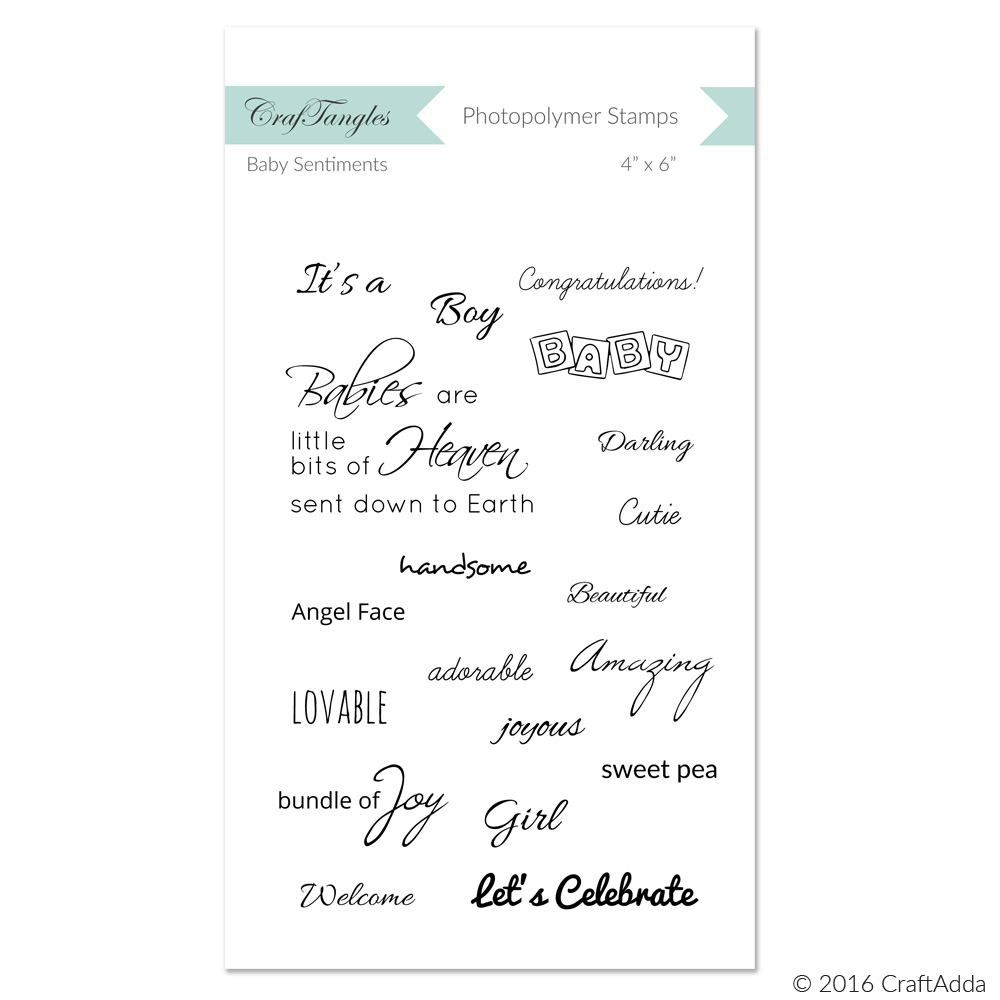 CrafTangles
Photopolymer Stamps
Baby Sentiments
4” x 6”
It's a
Boy
Congratulations!
BABY
Babies are
little
bits of Heaven
sent down to Earth
Darling
Cutie
handsome
Beautiful
Angel Face
adorable
Amazing
LOVABLE
joyous
sweet pea
bundle of Joy
Girl
Welcome
Let's Celebrate
© 2016 CraftAdda